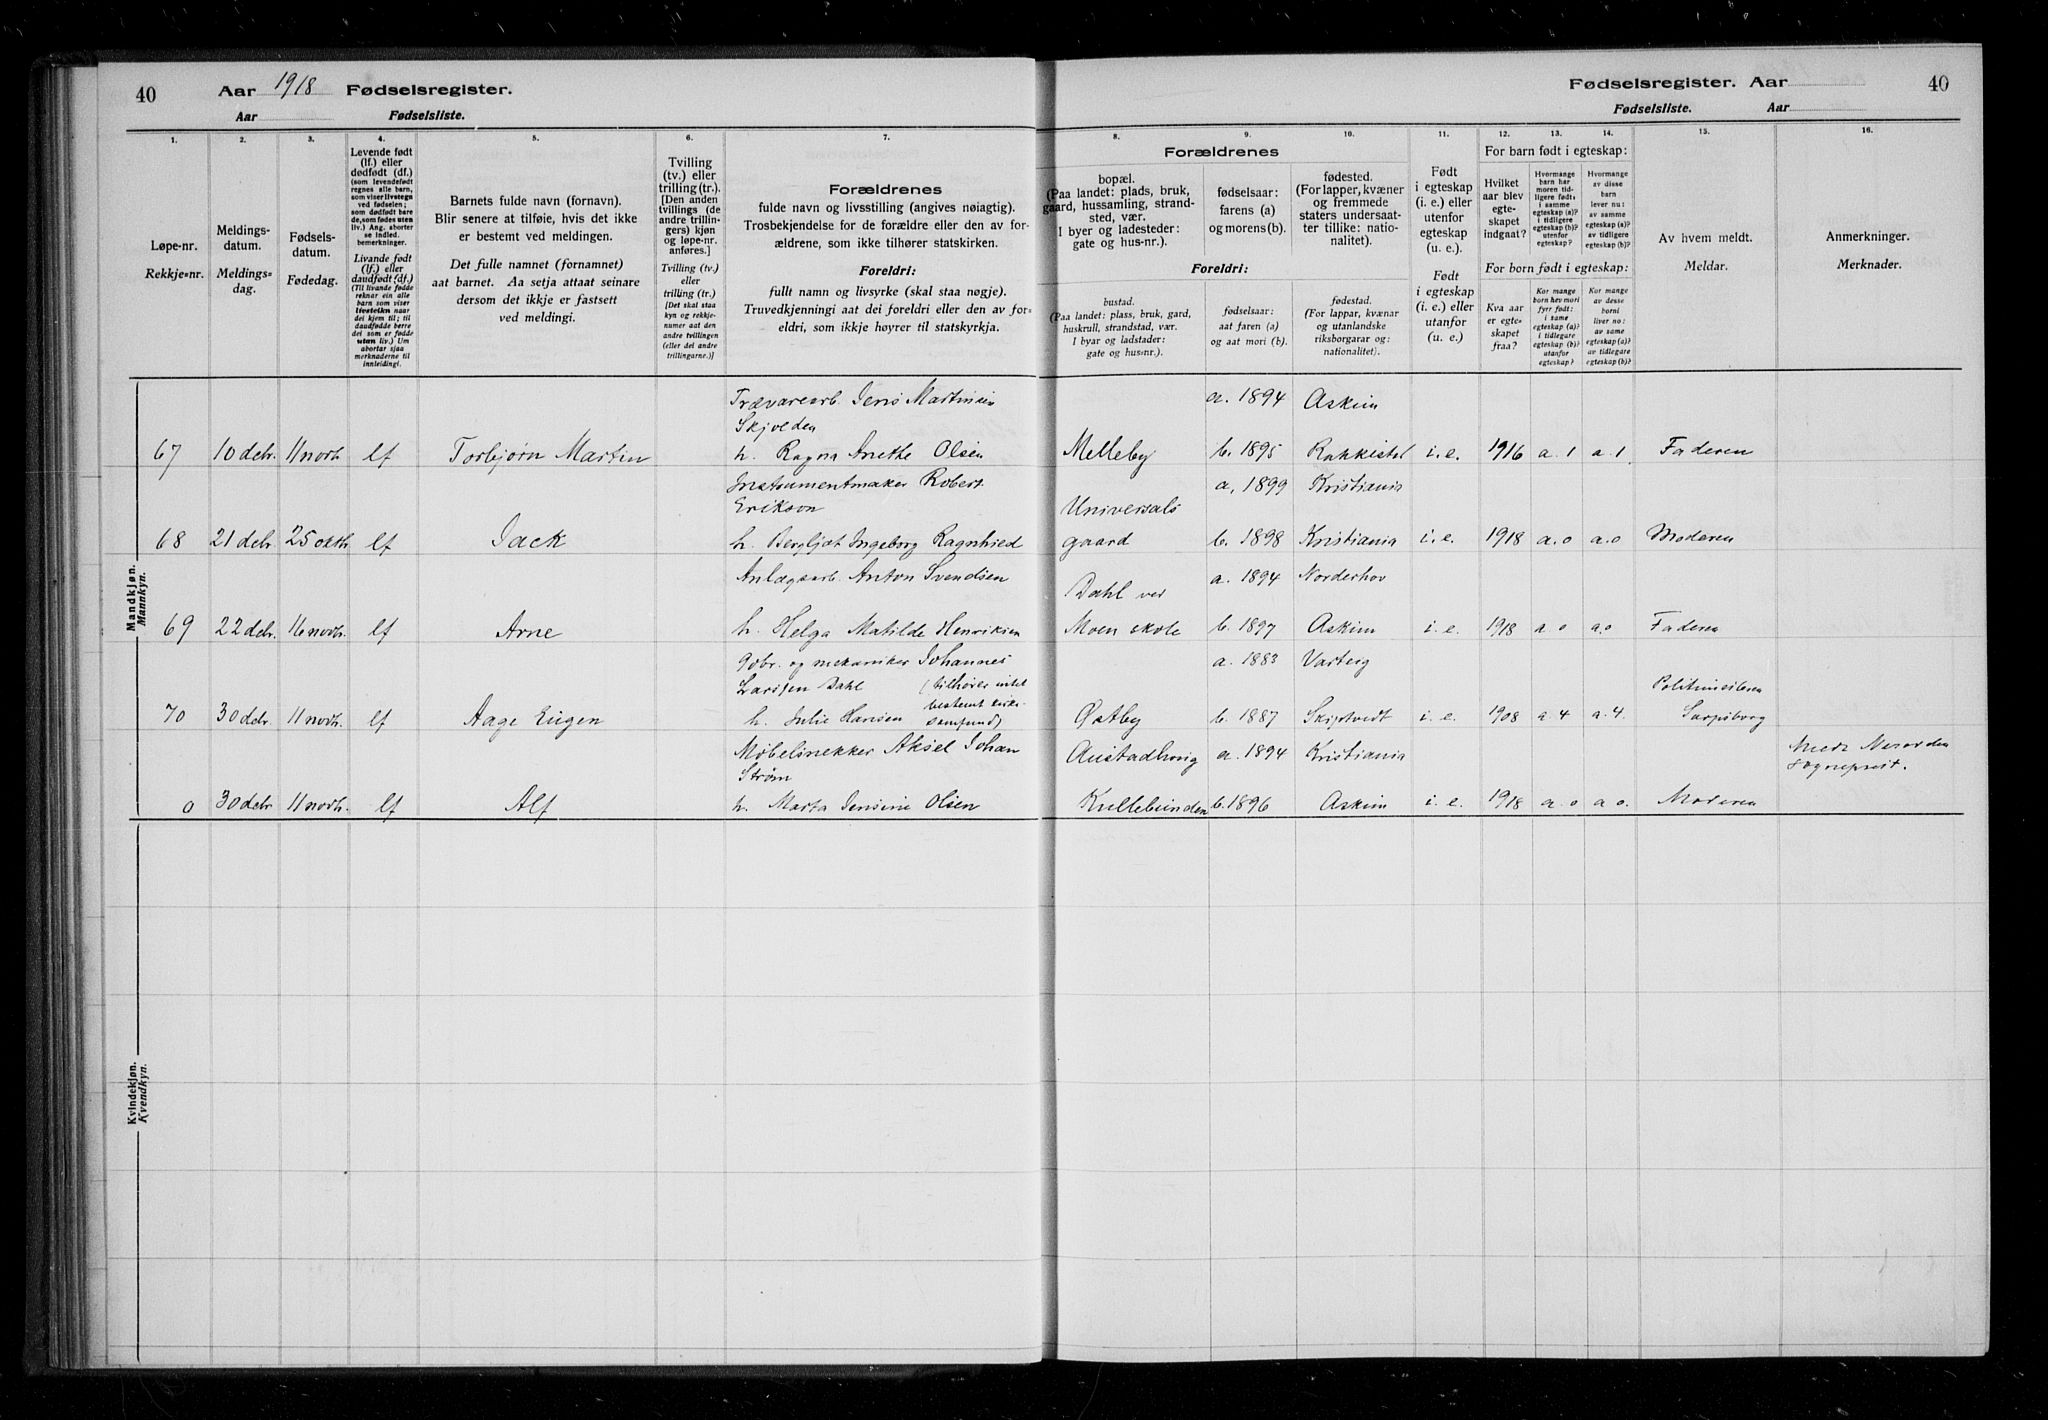 40 Aar 1918 Fødselsregister.
Aar Fødselsliste.
Fødselsregister. Aar 40
Fødselsliste. Aar
1. 2. 3. 4. 5. 6. 7. 8. 9. 10. 11. 12. 13. 14. 15. 16.
Løpe-nr.
Rekkje-nr.
Meldings-
datum.
Meldings-
dag.
Fødsels-
datum.
Fødedag.
Levende født
(lf.) eller
dødfødt (df.)
(som levendefødt
regnes alle barn,
som viser livstegn
ved fødselen;
som dødfødt bare
de, som fødes uten
liv.) Ang. aborter
se indled.
bemerkninger.
Livande født
(lf.) eller
daudfødt (df.)
(Til livande fødde
reknar ein alle
barn som viser
livsteikn naar
dei kjem til; til
daudfødde berre
dei som er fødde
utan liv.) Um
abortar sjaa
merknaderne til
innleidingi.
Barnets fulde navn (fornavn).
Blir senere at tilføie, hvis det ikke
er bestemt ved meldingen.
Det fulle namnet (fornamnet)
aat barnet. Aa setja attaat seinare
dersom det ikkje er fastsett
ved meldingi.
Tvilling
(tv.) eller
trilling (tr.).
[Den anden
tvillings (de
andre trillin-
gers) kjøn
og løpe-nr.
anføres.]
Tvilling (tv.)
eller
trilling (tr.)
[Det skal staa
kyn og rekkje-
numer aat den
andre tvillingen
(eller dei andre
trillingarne.)]
Forældrenes
fulde navn og livsstilling (angives nøiagtig).
Trosbekjendelse for de forældre eller den av for-
ældrene, som ikke tilhører statskirken.
Foreldri:
fullt namn og livsyrke (skal staa nøgje).
Truvedkjenningi aat dei foreldri eller den av for-
eldri, som ikkje høyrer til statskyrkja.
Forældrenes
bopæl.
(Paa landet: plads, bruk,
gaard, hussamling, strand-
sted, vær.
I byer og ladesteder:
gate og hus-nr.).
fødselsaar:
farens (a)
og morens (b).
fødested.
(For lapper, kvæner
og fremmede
staters undersaat-
ter tillike: natio-
nalitet).
Foreldri:
bustad.
(Paa landet: plass, bruk, gard,
huskrull, strandstad, vær.
I byar og ladstader:
gate og hus-nr.).
fødselsaar:
aat faren (a)
og aat mori (b).
fødestad.
(For lappar, kvænar
og utanlandske
riksborgarar og:
nationalitet).
Født
i egteskap
(i. e.) eller
utenfor
egteskap
(u. e.).
Født
i egteskap
(i. e.) eller
utanfor
(u. e.).
For barn født i egteskap:
Hvilket
aar blev
egte-
skapet
indgaat?
Hvormange
barn har
moren tid-
ligere født:
i samme
egteskap (a)?
i tidligere
egteskap (b)?
utenfor
egteskap?
Hvormange
av disse
barn
lever nu:
av samme
egteskap (a)?
av tidligere
egteskap (b)?
For born født i egteskap:
Kva aar
er egte-
skapet
fraa?
Kor mange
born hev mori
fyrr født:
i same
egteskap (a)?
i tidlegare
egteskap (b)?
utanfor
egteskap?
Kor mange
av desse
borni
liver no:
av same
egteskap (a)?
av tidlegare
egteskap (b)?
Av hvem meldt.
Meldar.
Anmerkninger.
Merknader.
Mandkjøn.
Mannkyn.
Trævarearb. Jens Martinsen a. 1894 Askim
Skjolden
67 10 debr. 11 novb. lf Torbjørn Martin h. Ragna Anethe Olsen Melleby b. 1895 Rakkestad i. e. 1916 a. 1 a. 1 Faderen
Instrumentmaker Robert a. 1899 Kristiania
Erikson Universals
68 21 debr. 25 oktb. lf Jack h. Bergljot Ingeborg Ragnhild gaard b. 1898 Kristiania i. e. 1918 a. 0 a. 0 Moderen
Anlægsarb. Anton Svendsen Dahl ved a. 1894 Norderhov
69 22 debr. 16 novb. lf Arne h. Helga Matilde Henriksen Moen skole b. 1897 Askim i. e. 1918 a. 0 a. 0 Faderen
Gbr. og mekaniker Johannes a. 1883 Varteig
Larssen Dahl (tilhører intet Politimesteren
bestemt kirke-
70 30 debr. 11 novb. lf Aage Eugen h. Julie Hansen samfund) Østby b. 1887 Skiptvedt i. e. 1908 a. 4 a. 4. Sarpsborg
Møbelsnekker Aksel Johan Austadhøug a. 1894 Kristiania Meldt Nesodden
Strøm sogneprest.
0 30 debr. 11 novb. lf Alf h. Marta Jensine Olsen Kullebunden b. 1896 Askim i. e. 1918 a. 0 a 0. Moderen
Kvindekjøn.
Kvendkyn.